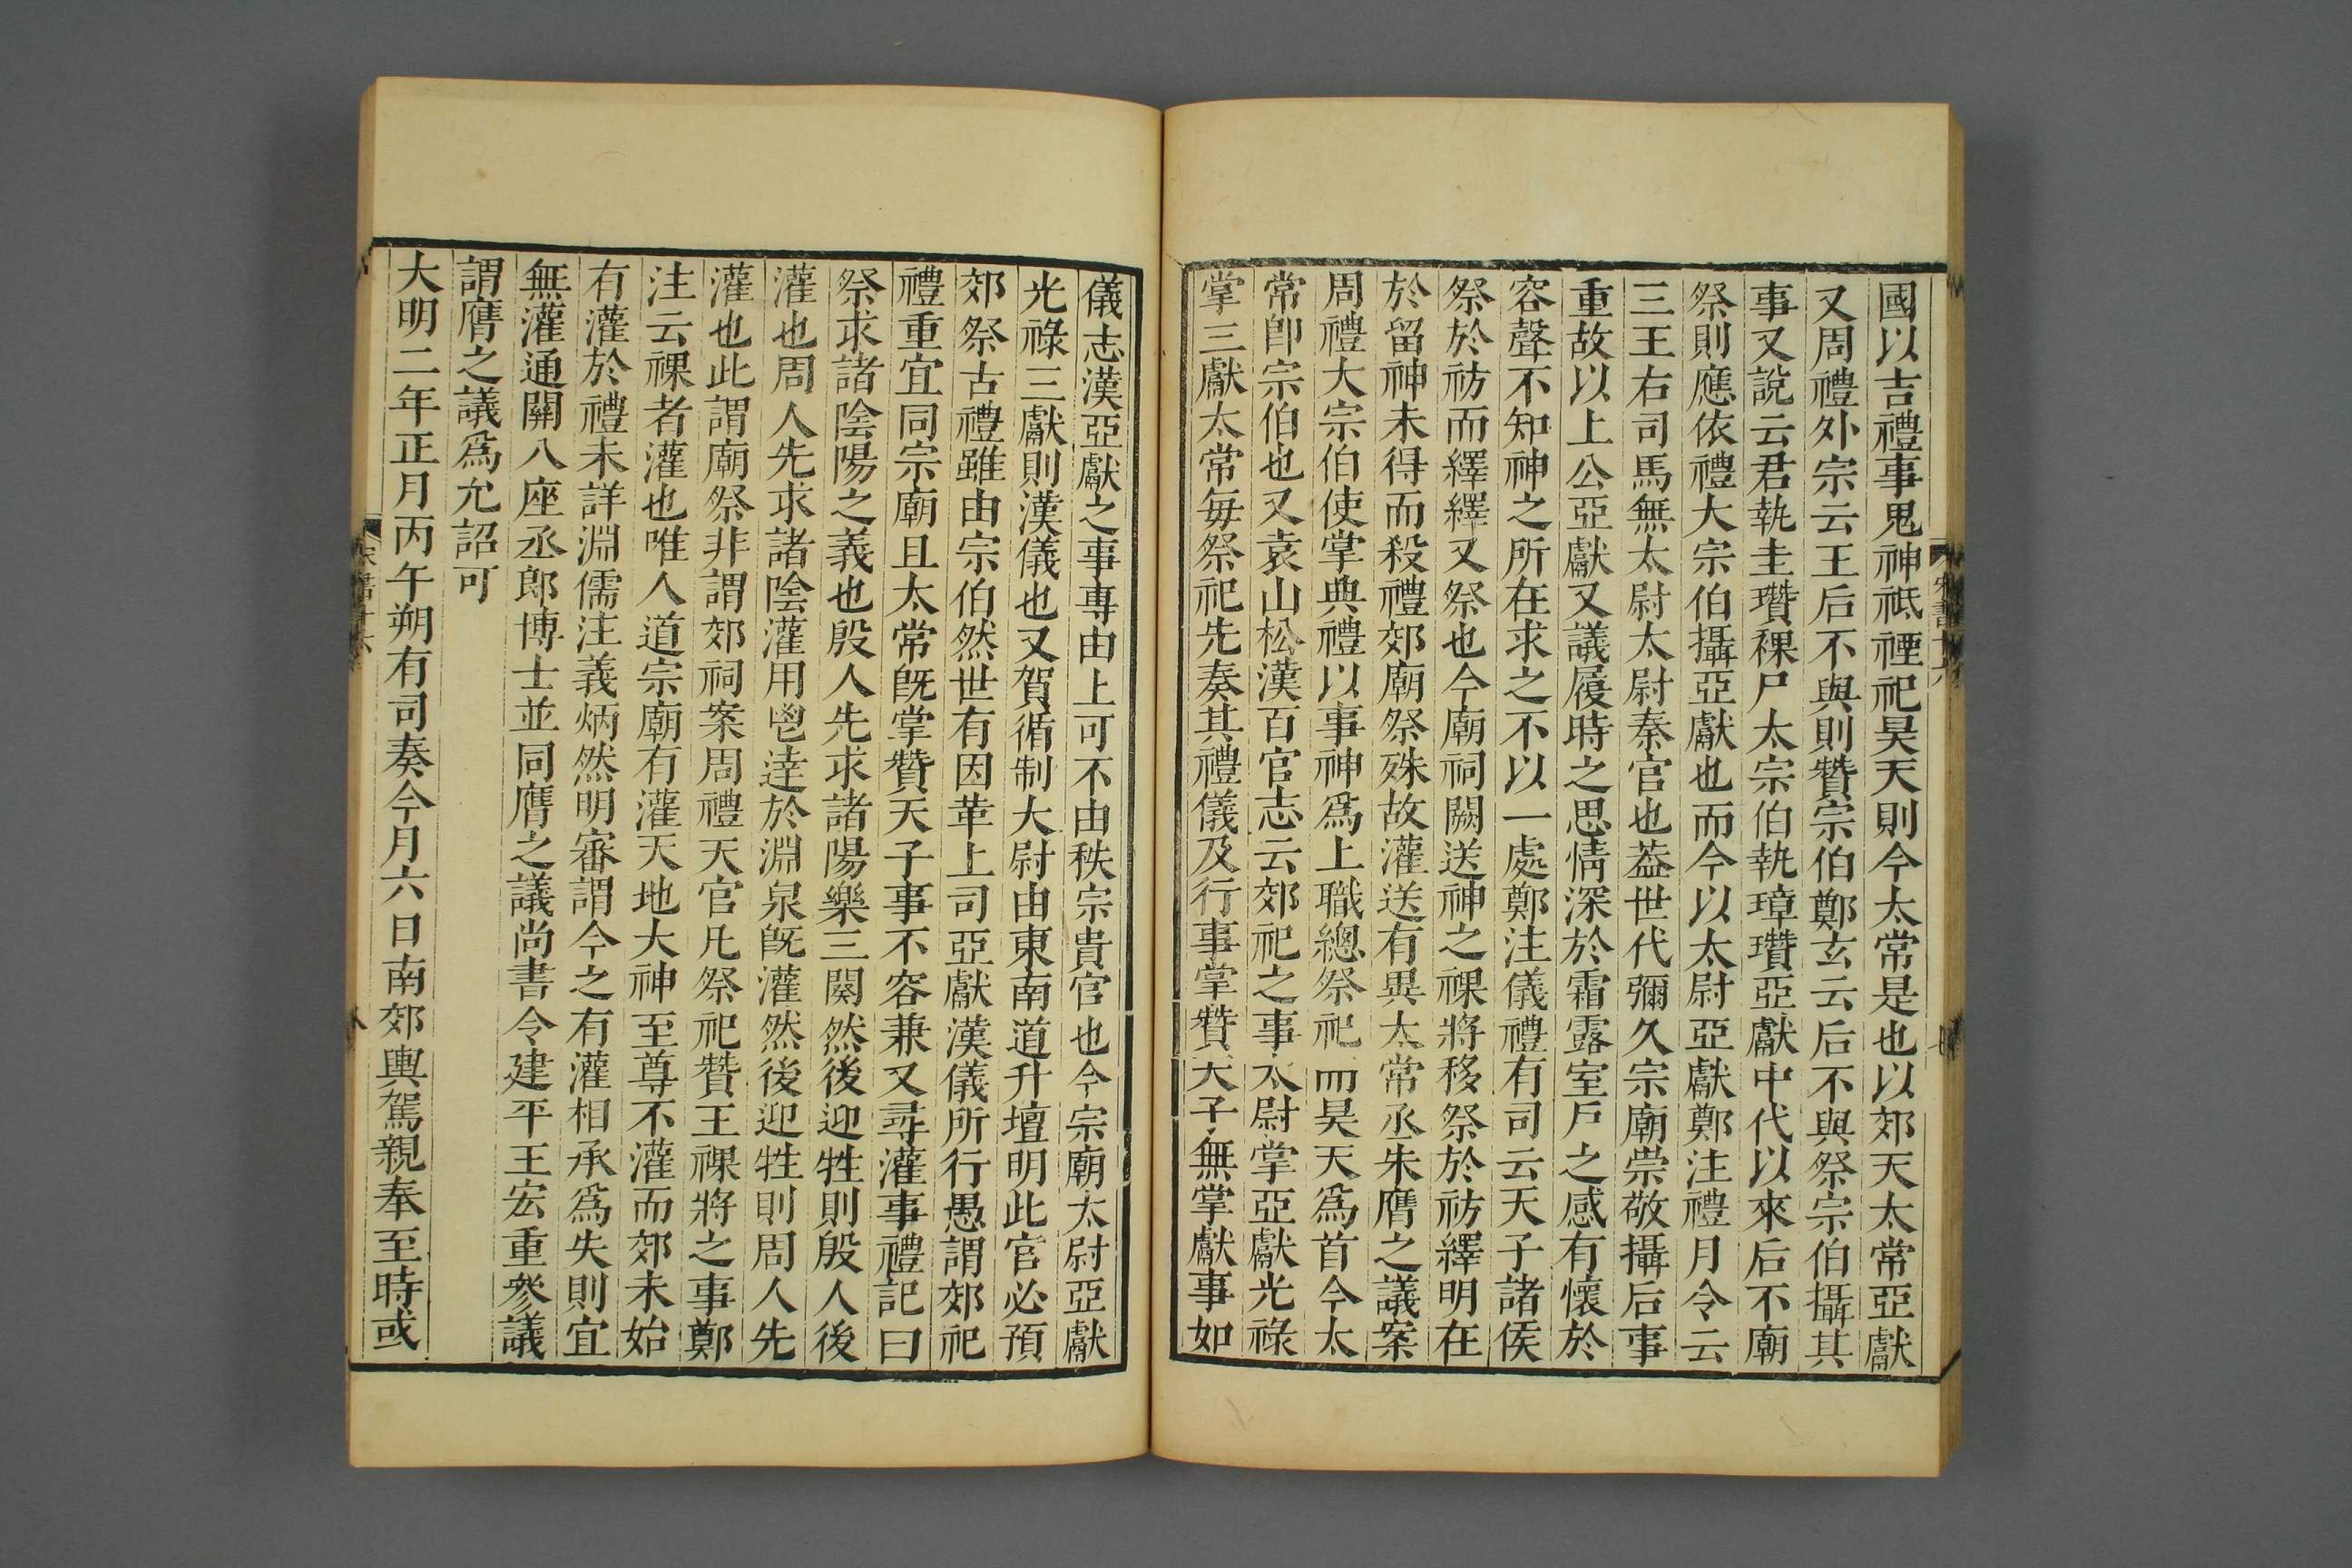 國以吉禮事鬼神祗禋祀昊天則今太常是也以郊天太常亞獻
又周禮外宗云王后不與則贊宗伯鄭玄云后不與祭宗伯攝其
事又說云君執圭瓚祼尸太宗伯執璋瓚亞獻中代以來后不廟
祭則應依禮大宗伯攝亞獻也而今以太尉亞獻鄭注禮月令云
三王右司馬無太尉太尉秦官也葢世代彌久宗廟崇敬攝后事
重故以上公亞獻又議履時之思情深於霜露室戶之感有懷於
容聲不知神之所在求之不以一處鄭注儀禮有司云天子諸侯
祭於祊而繹繹又祭也今廟祠闕送神之祼將移祭於祊繹明在
於留神未得而殺禮郊廟祭殊故灌送有異太常丞朱膺之議案
周禮大宗伯使掌典禮以事神爲上職總祭祀而昊天爲首今太
常卽宗伯也又袁山松漢百官志云郊祀之事太尉掌亞獻光祿
掌三獻太常每祭祀先奏其禮儀及行事掌贊天子無掌獻事如
儀志漢亞獻之事專由上可不由秩宗貴官也今宗廟太尉亞獻
光祿三獻則漢儀也又賀循制大尉由東南道升壇明此官必預
郊祭古禮雖由宗伯然世有因革上司亞獻漢儀所行愚謂郊祀
禮重宜同宗廟且太常旣掌贊天子事不容兼又尋灌事禮記曰
祭求諸陰陽之義也殷人先求諸陽樂三闋然後迎牲則殷人後
灌也周人先求諸陰灌用鬯達於淵泉旣灌然後迎牲則周人先
灌也此謂廟祭非謂郊祠案周禮天官凡祭祀贊王祼將之事鄭
注云祼者灌也唯人道宗廟有灌天地大神至尊不灌而郊未始
有灌於禮未詳淵儒注義炳然明審謂今之有灌相承爲失則宜
無灌通關八座丞郎博士並同膺之議尚書令建平王宏重參議
謂膺之議爲允詔可
大明二年正月丙午朔有司奏今月六日南郊輿駕親奉至時或